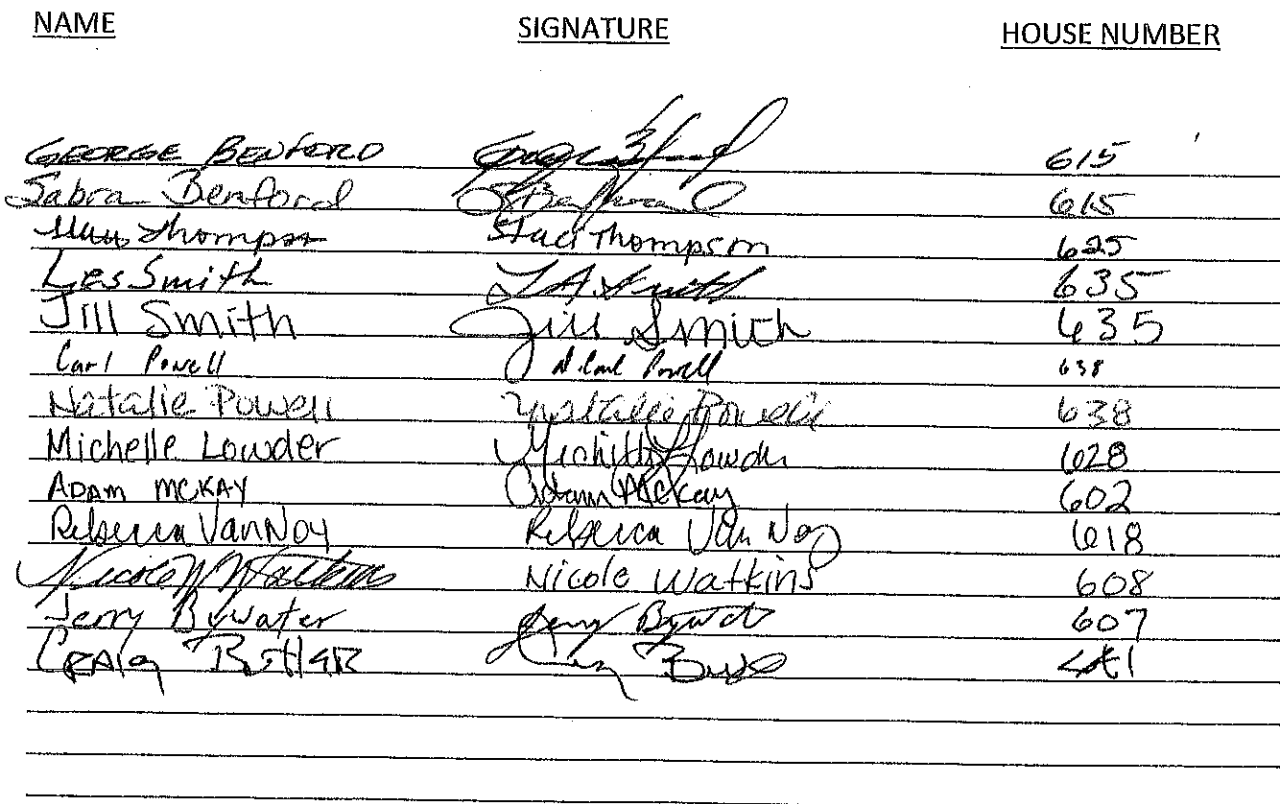 NAME SIGNATURE HOUSE NUMBER
GEORGE BENFORD 615
Sabra Benford SBenford 615
Thompson Staci Thompson 625
Les Smith L A Smith 635
Jill Smith Jill Smith 635
Carl Powell Carl Powell 638
Natalie Powell Natalie Powell 638
Michelle Lowder Michelle Lowder 628
ADAM MCKAY Adam McKay 602
Rebecca VanNoy Rebecca Van Noy 618
Nicole M Watkins Nicole Watkins 608
Jerry Bywater Jerry Bywater 607
CRAIG